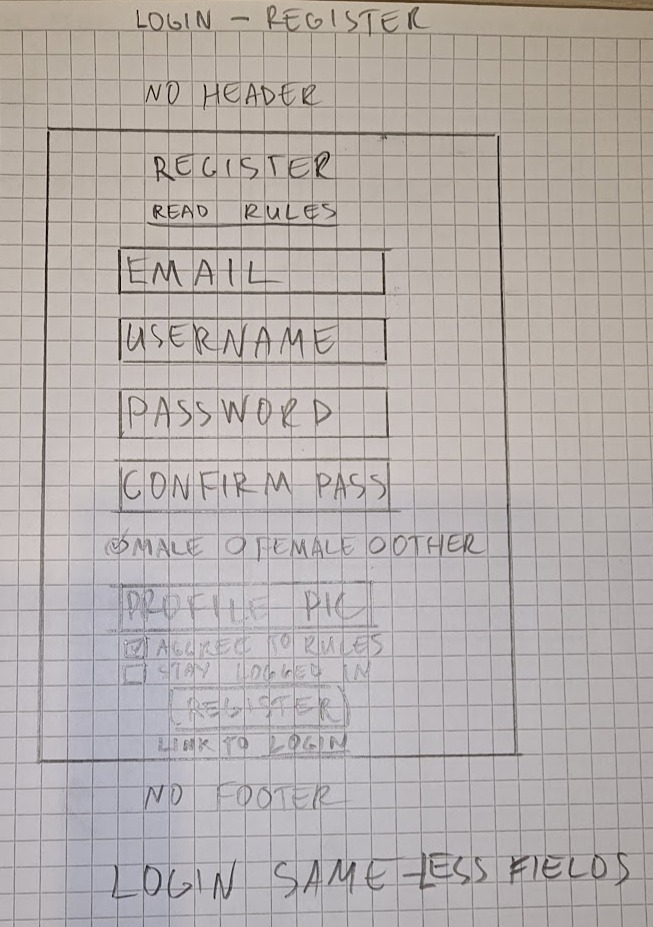 LOGIN - REGISTER
NO HEADER
REGISTER
READ RULES
EMAIL
USERNAME
PASSWORD
CONFIRM PASS
MALE O FEMALE O OTHER
PROFILE PIC
AGGREE TO RULES
STAY LOGGED IN
REGISTER
LINK TO LOGIN
NO FOOTER
LOGIN SAME - LESS FIELDS